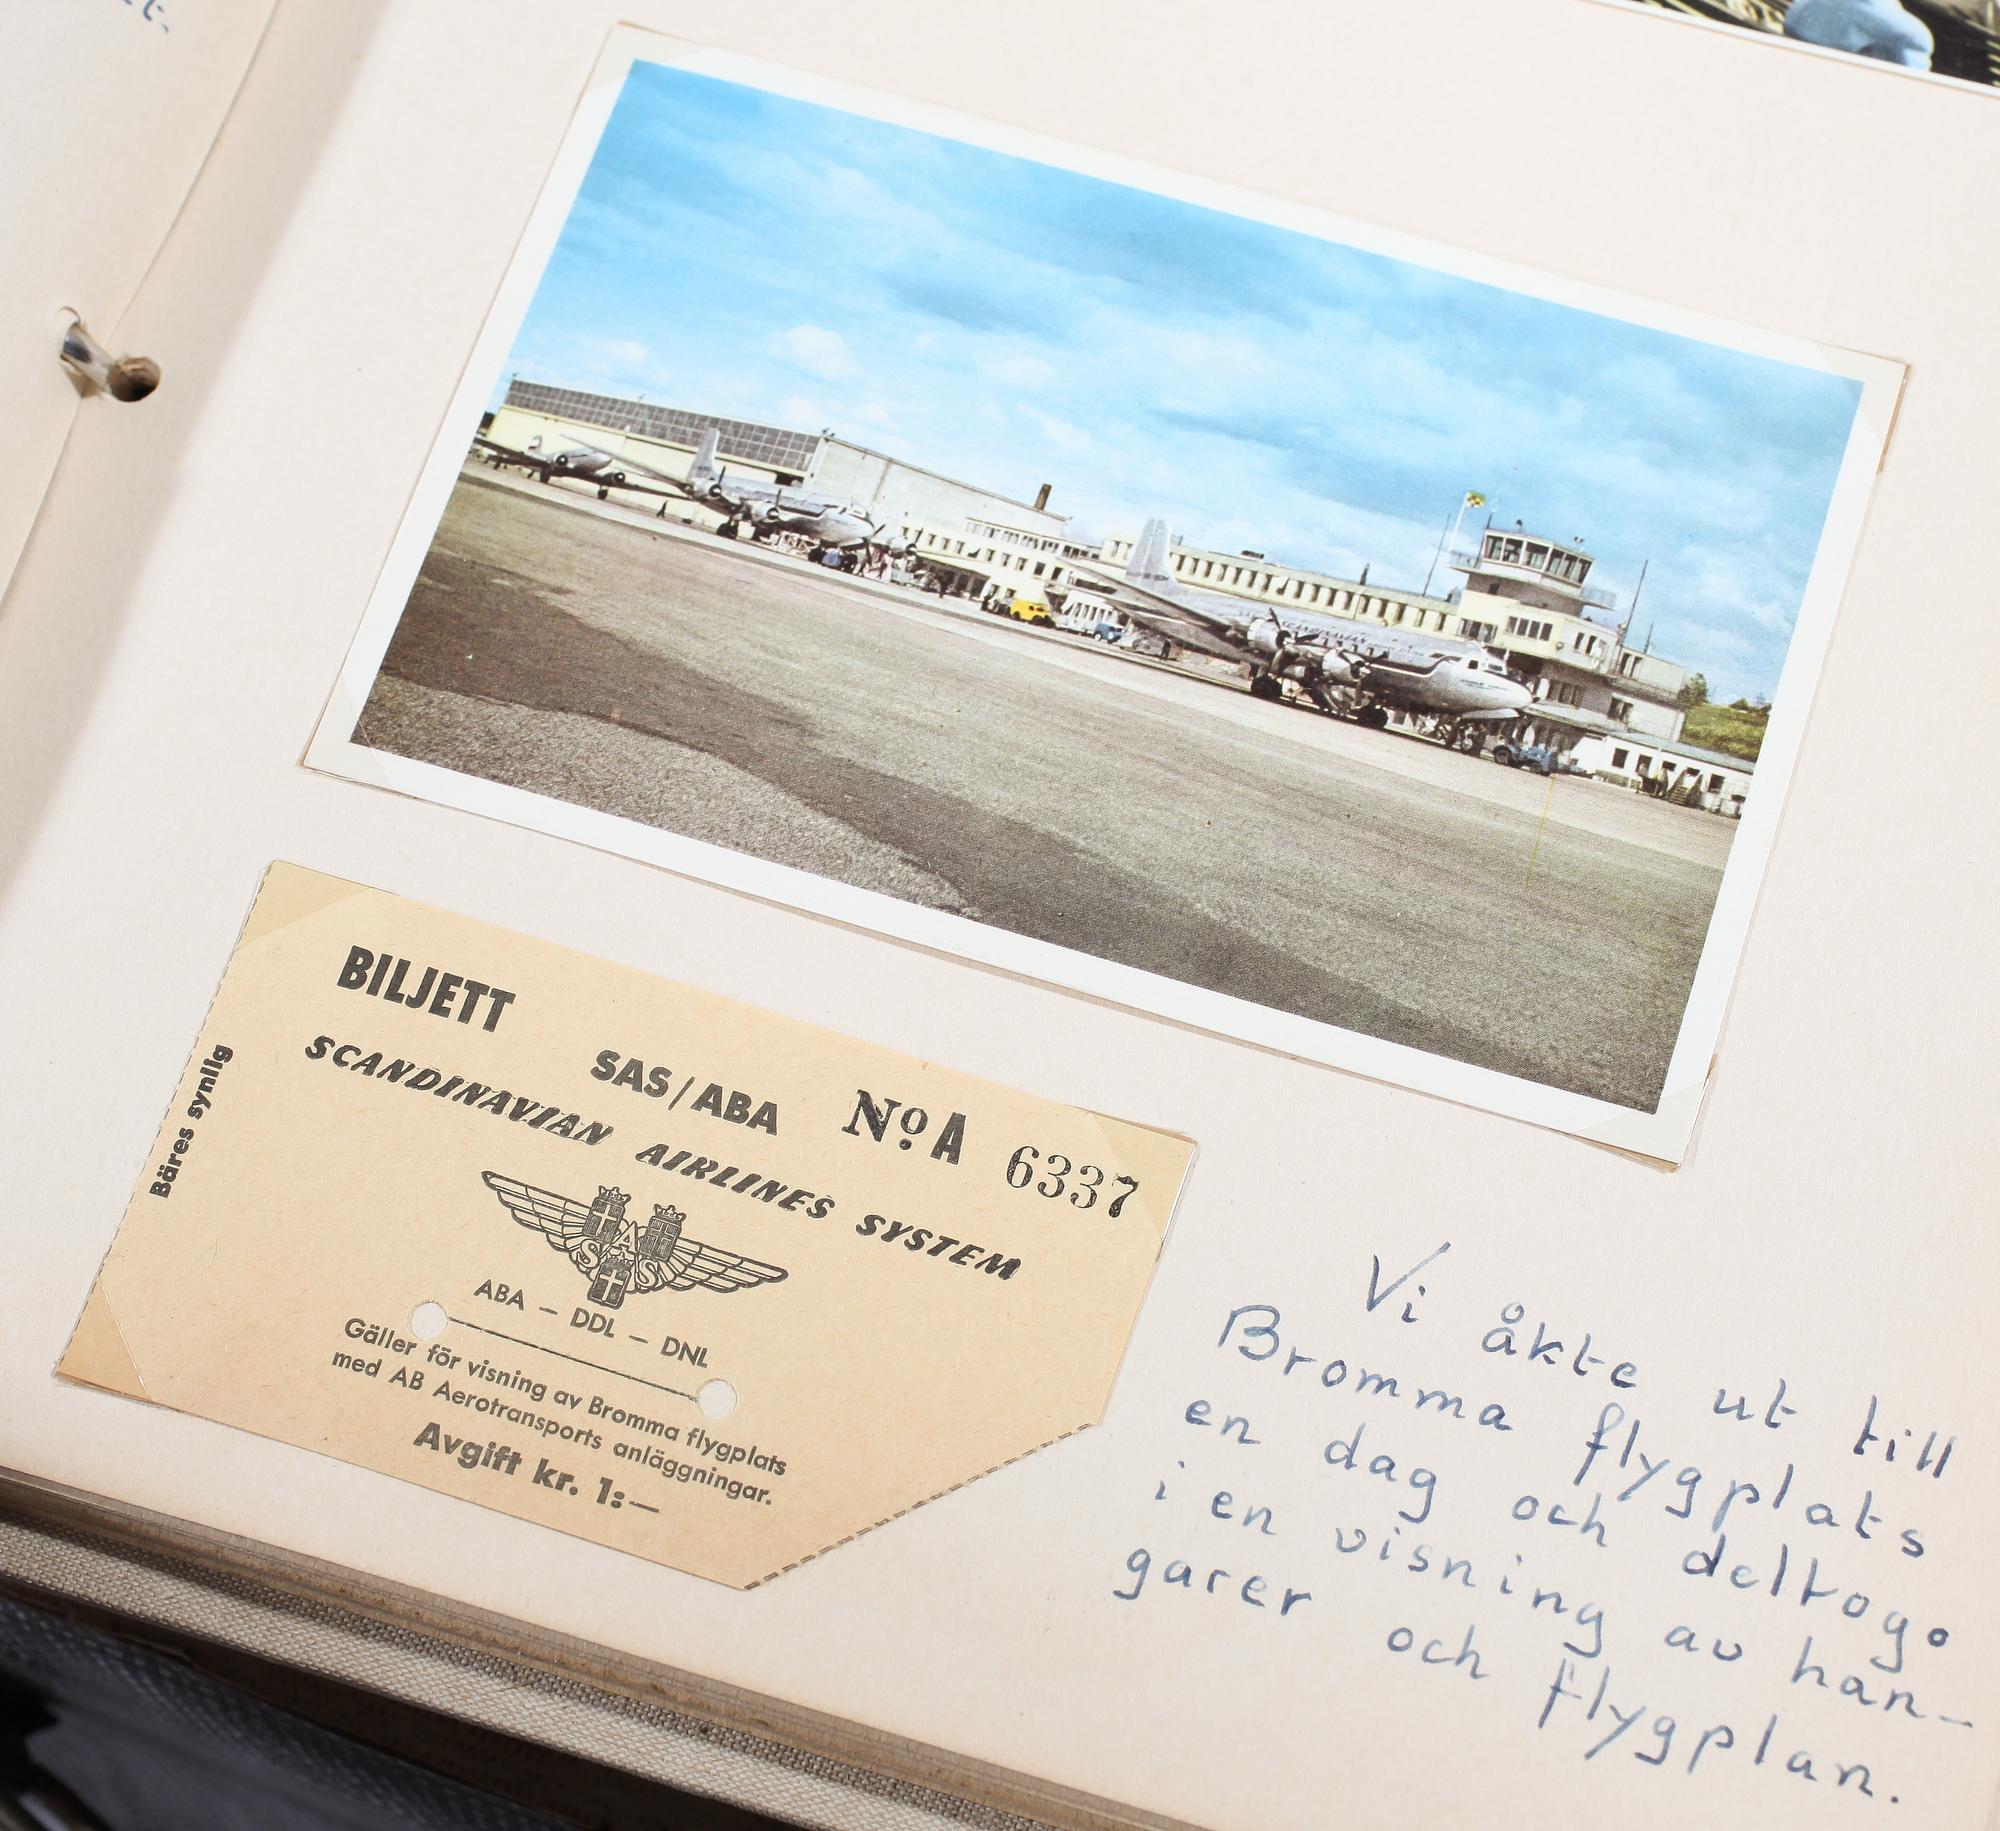 BILJETT
SAS/ABA
No. A 6337
SCANDINAVIAN AIRLINES SYSTEM
SAS
ABA – DDL – DNL
Gäller för visning av Bromma flygplats
med AB Aerotransports anläggningar.
Avgift kr. 1:—
Bäres synlig
Vi åkte ut till
Bromma flygplats
en dag och deltogo
i en visning av han-
garer och flygplan.
SCANDINAVIAN